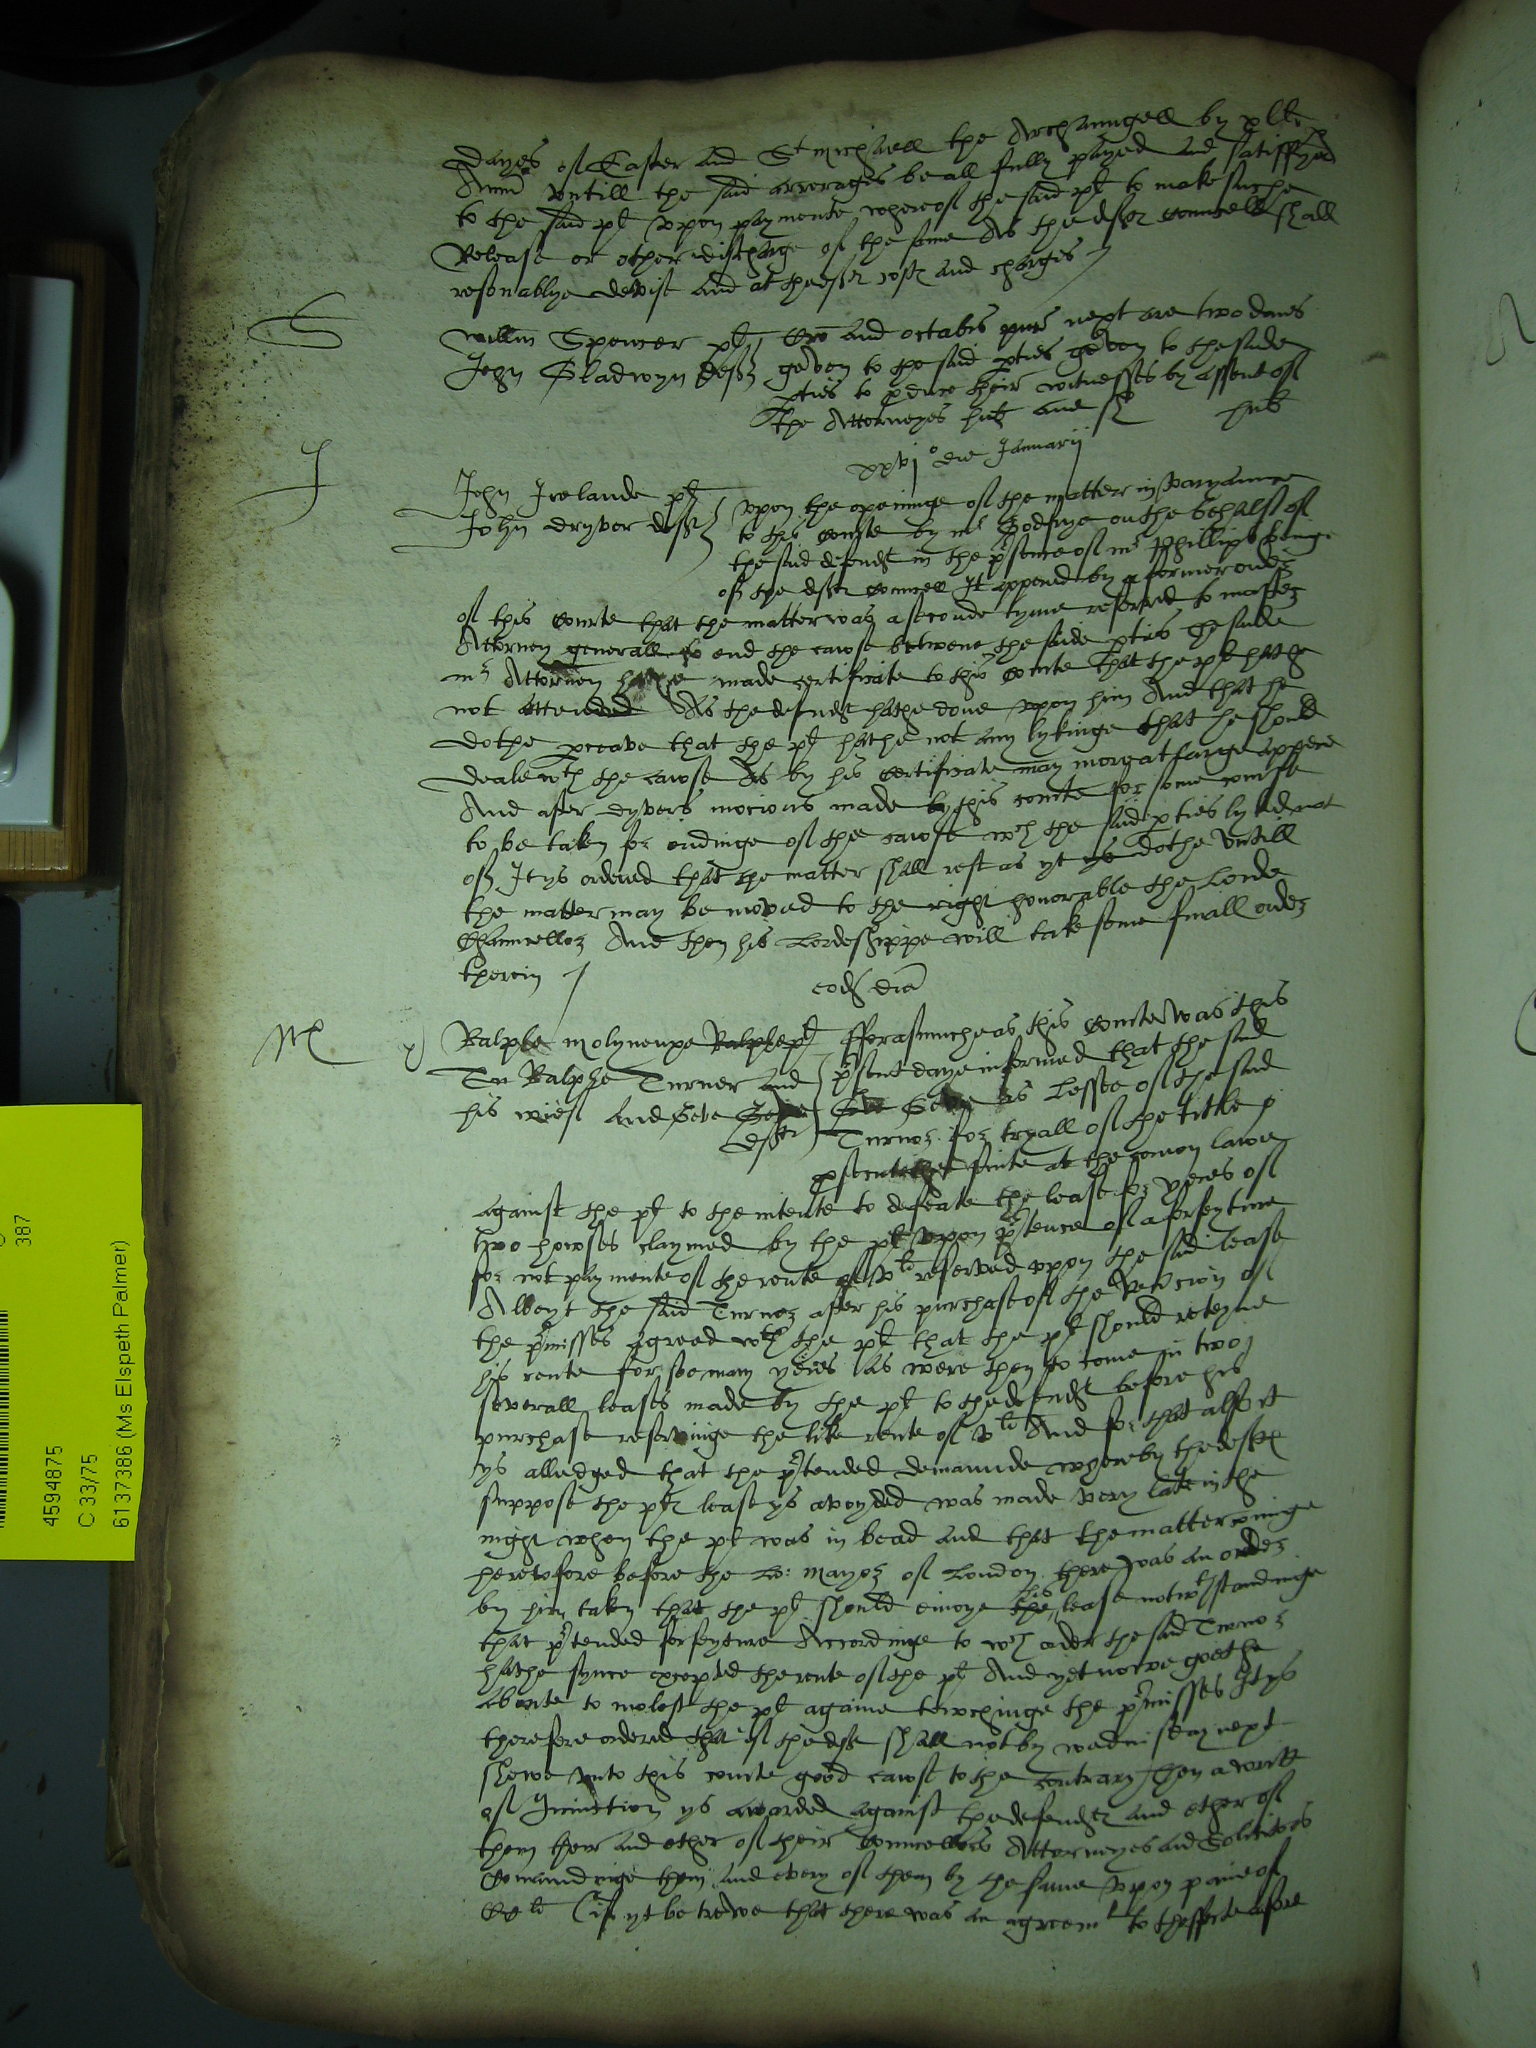 dayes of Easter and St michaell the Archanngell by
Annu untill the said arrerages be all fully payed and satisffyed
to the said plt upon paymente whereof the said plt to make suche
Release or other discharge of the same As the deftes councell shall
resonablye devise and at theffts costs and charges
S
willm Spencer plt
John Gladwyn deft
Cro and octabis next are two daies
geven to the said pties geven to the saide
pties to pduce their witnesses by assent of
the Attorneyes
xxvjo die Januarij
J
John Irelande plt
John dryver deft
upon the openinge of the matter in varyaunce
to this courte by mr Godfrye on the behalf of
the said defendt in the psence of mr Phillips beinge
of the deftes councell It appered by a former order
of this Courte that the matter was a seconde tyme referred to master
Attorney generall to end the cause betwene the saide pties The saide
mr Attorney hathe made certificate to this Courte That the plt hathe
not attended As the defendt hathe done upon him And that he
dothe pceave that the plt hathe not any lykinge that he should
deale wth the cause As by his Certificate may more at large appere
And after dyvers mocions made by this courte for some course
to be taken for endinge of the cause wch the said pties lyked not
of It ys ordered that the matter shall rest as yt ys dothe untill
the matter may be moved to the right honorable the Lorde
Chauncellor And then his Lordeshippe will take some finall order
therein
eodm die
M
Ralphe molyneuxe Ralphe plt
Ralphe Turner and
his wief and
deftes
fforasmuche as this Courte was this
psent daye informed that the said
as Lessee of the said
Turnor for tryall of the title
suite at the comon lawe
against the plt to the intente to defeate the lease for yeres of
two howses claymed by the plt upon ptence of a forfeyture
for not paymente of the rente of vli reserved upon the said lease
Albeyt the said Turnor after his purchase of the Revercion of
the pmisses agreed wth the plt that the plt should reteyne
his rente for soe many yeres as were then to come in two
severall leases made by the plt to the defendt before his
purchase reservinge the like rente of vli And for that also yt
ys alledged that the ptended demaunde whereby the deftes
suppose the pltes lease ys avoyded was made very late in the
night when the plt was in bead and that the matter cominge
heretofore before the Lo: mayor of London there was an order
by him taken that the plt should enioye the his lease notwthstandinge
that ptended forfeyture Accordinge to wch order the said Turnor
hathe synce excepted the rente of the plt And yet nowe goethe
aboute to molest the plt againe towchinge the pmisses It ys
therefore ordered that if the deftes shall not by wednisday next
shewe unto this courte good cause to the contrary Then a writt
of Iniunction ys awarded against the defendtes and ether of
them their and ether of their Councellors Attorneyes and Solicitors
Comaundinge them and every of them by the same upon paine of
CCli (if yt be trewe that there was an agreemt to theffecte afore
387
4594875
C 33/75
61373886 (Ms Elspeth Palmer)